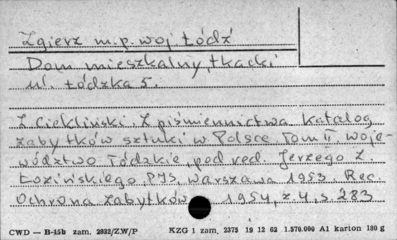 Zgierz m.p. woj Łódź
Dom mieszkalny, tkacki
ul. Łódzka 5.
Z piśmiennictwa Katalog
zabytków sztuki w Polsce Tom II. Woje-
wództwo Łódzkie, pod red. Jerzego Z.
Łozińskiego, PIS, Warszawa 1953 Rec.
Ochrona Zabytków 1954, z 4, s 283
CWD — H-15b zam. 2032/Z.W/P KZG 1 zam. 2375 19 12 62 1.570.000 A1 karton 180 g